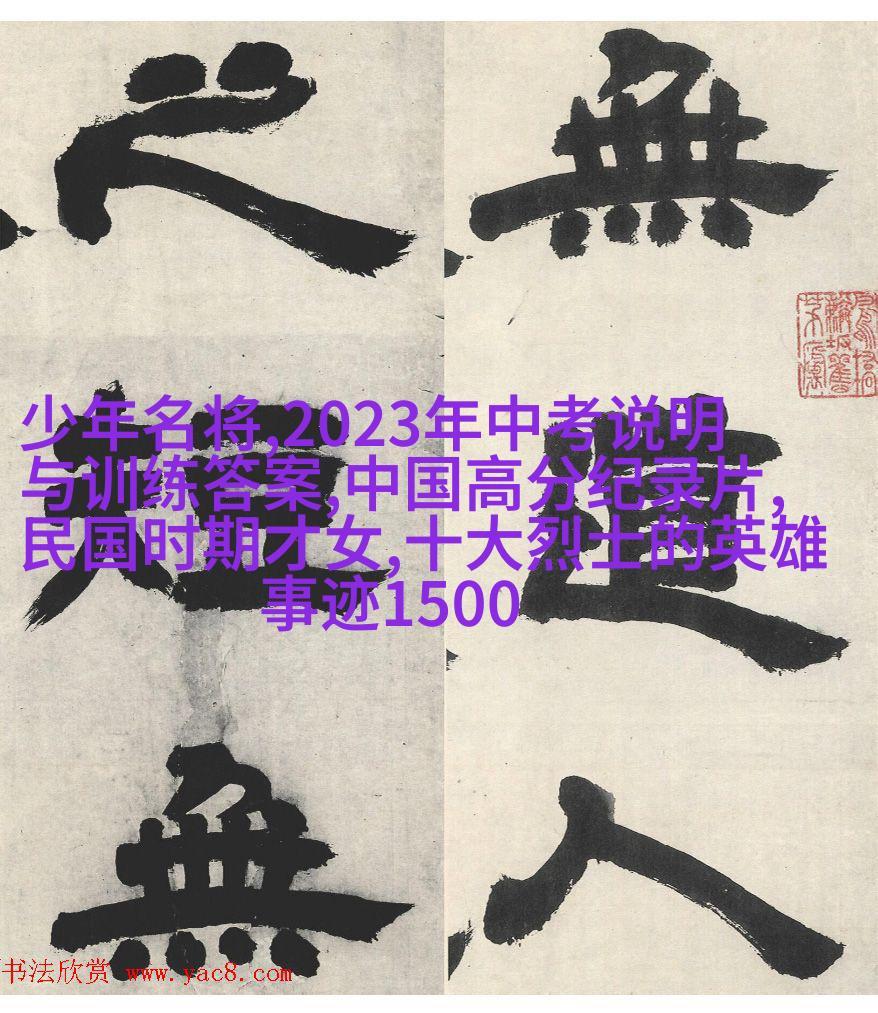 無道人
之短無
少年名将,2023年中考说明
与训练答案,中国高分纪录片,
民国时期才女,十大烈士的英雄
事迹1500
书法欣赏 www.yac8.com